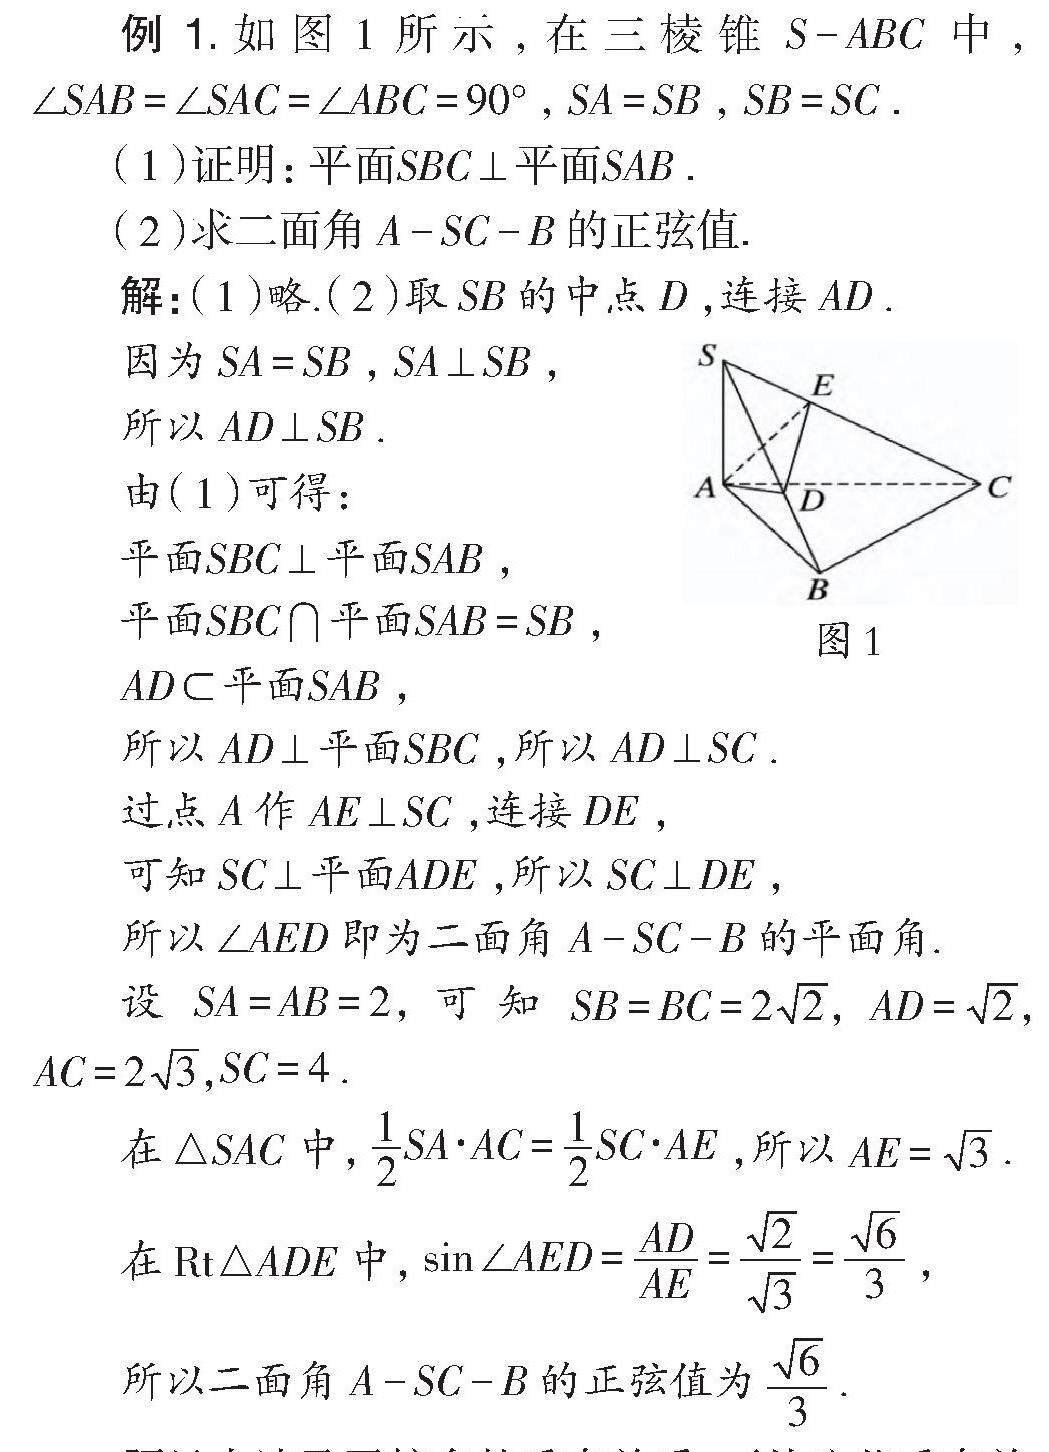 例 1. 如图 1 所示，在三棱锥 S-ABC 中，
∠SAB=∠SAC=∠ABC=90°，SA=SB，SB=SC.
(1)证明：平面SBC⊥平面SAB.
(2)求二面角 A-SC-B 的正弦值.
解：(1)略.(2)取 SB 的中点 D，连接 AD.
因为 SA=SB，SA⊥SB，
所以 AD⊥SB.
由(1)可得：
平面SBC⊥平面SAB，
平面SBC∩平面SAB=SB，
AD⊂平面SAB，
S
E
A
D
C
B
图 1
所以 AD⊥平面SBC，所以 AD⊥SC.
过点 A 作 AE⊥SC，连接 DE，
可知 SC⊥平面ADE，所以 SC⊥DE，
所以∠AED 即为二面角 A-SC-B 的平面角.
设 SA=AB=2，可知 SB=BC=2√2，AD=√2，
AC=2√3,SC=4.
在 △SAC 中，1/2 SA·AC=1/2 SC·AE，所以 AE=√3.
在 Rt△ADE 中，sin∠AED=AD/AE=√2/√3=√6/3，
所以二面角 A-SC-B 的正弦值为 √6/3.